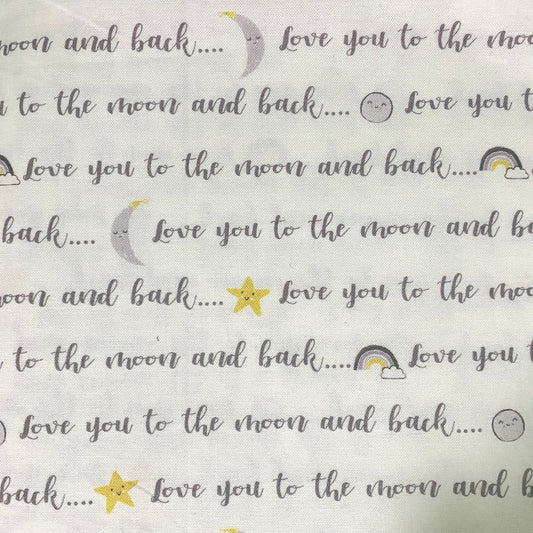 moon and back.... Love you to the moo
u to the moon and back.... Love you t
Love you to the moon and back....
back.... Love you to the moon and ba
moon and back.... Love you to the moo
to the moon and back.... Love you t
Love you to the moon and back....
back.... Love you to the moon and b